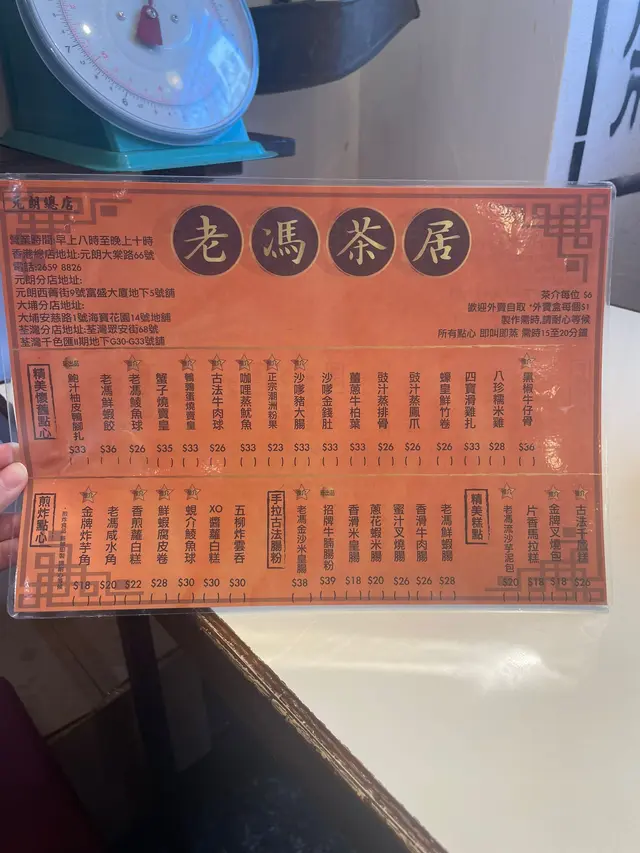 元朗總店
老馮茶居
營業時間:早上八時至晚上十時
香港總店地址:元朗大棠路66號
電話:2659 8826
元朗分店地址:
元朗西菁街9號富盛大廈地下5號舖
大埔分店地址:
大埔安慈路1號海寶花園14號地舖
荃灣分店地址:荃灣眾安街68號
荃灣千色匯II期地下G30-G33號舖
茶介每位 $6
歡迎外賣自取 *外賣盒每個$1
製作需時,請耐心等候
所有點心 即叫即蒸 需時15至20分鐘
精美懷舊點心
鮑汁柚皮鴨腳扎 $33
老馮鮮蝦餃 $36
老馮鯪魚球 $26
蟹子燒賣皇 $35
鵪鶉蛋燒賣皇 $33
古法牛肉球 $26
咖哩蒸魷魚 $33
正宗潮洲粉果 $23
沙嗲豬大腸 $33
沙嗲金錢肚 $33
薑蔥牛柏葉 $33
豉汁蒸排骨 $26
豉汁蒸鳳爪 $26
蠔皇鮮竹卷 $26
四寶滑雞扎 $33
八珍糯米雞 $28
黑椒牛仔骨 $36
煎炸點心
金牌炸芋角 $18
老馮咸水角 $20
香煎蘿白糕 $22
鮮蝦腐皮卷 $28
蜆介鯪魚球 $30
XO醬蘿白糕 $30
五柳炸雲吞 $30
手拉古法腸粉
老馮金沙米皇腸 $38
招牌牛腩腸粉 $39
香滑米皇腸 $18
蔥花蝦米腸 $20
蜜汁叉燒腸 $26
香滑牛肉腸 $26
老馮鮮蝦腸 $28
精美糕點
老馮流沙芋泥包 $20
片香馬拉糕 $18
金牌叉燒包 $18
古法千層糕 $26